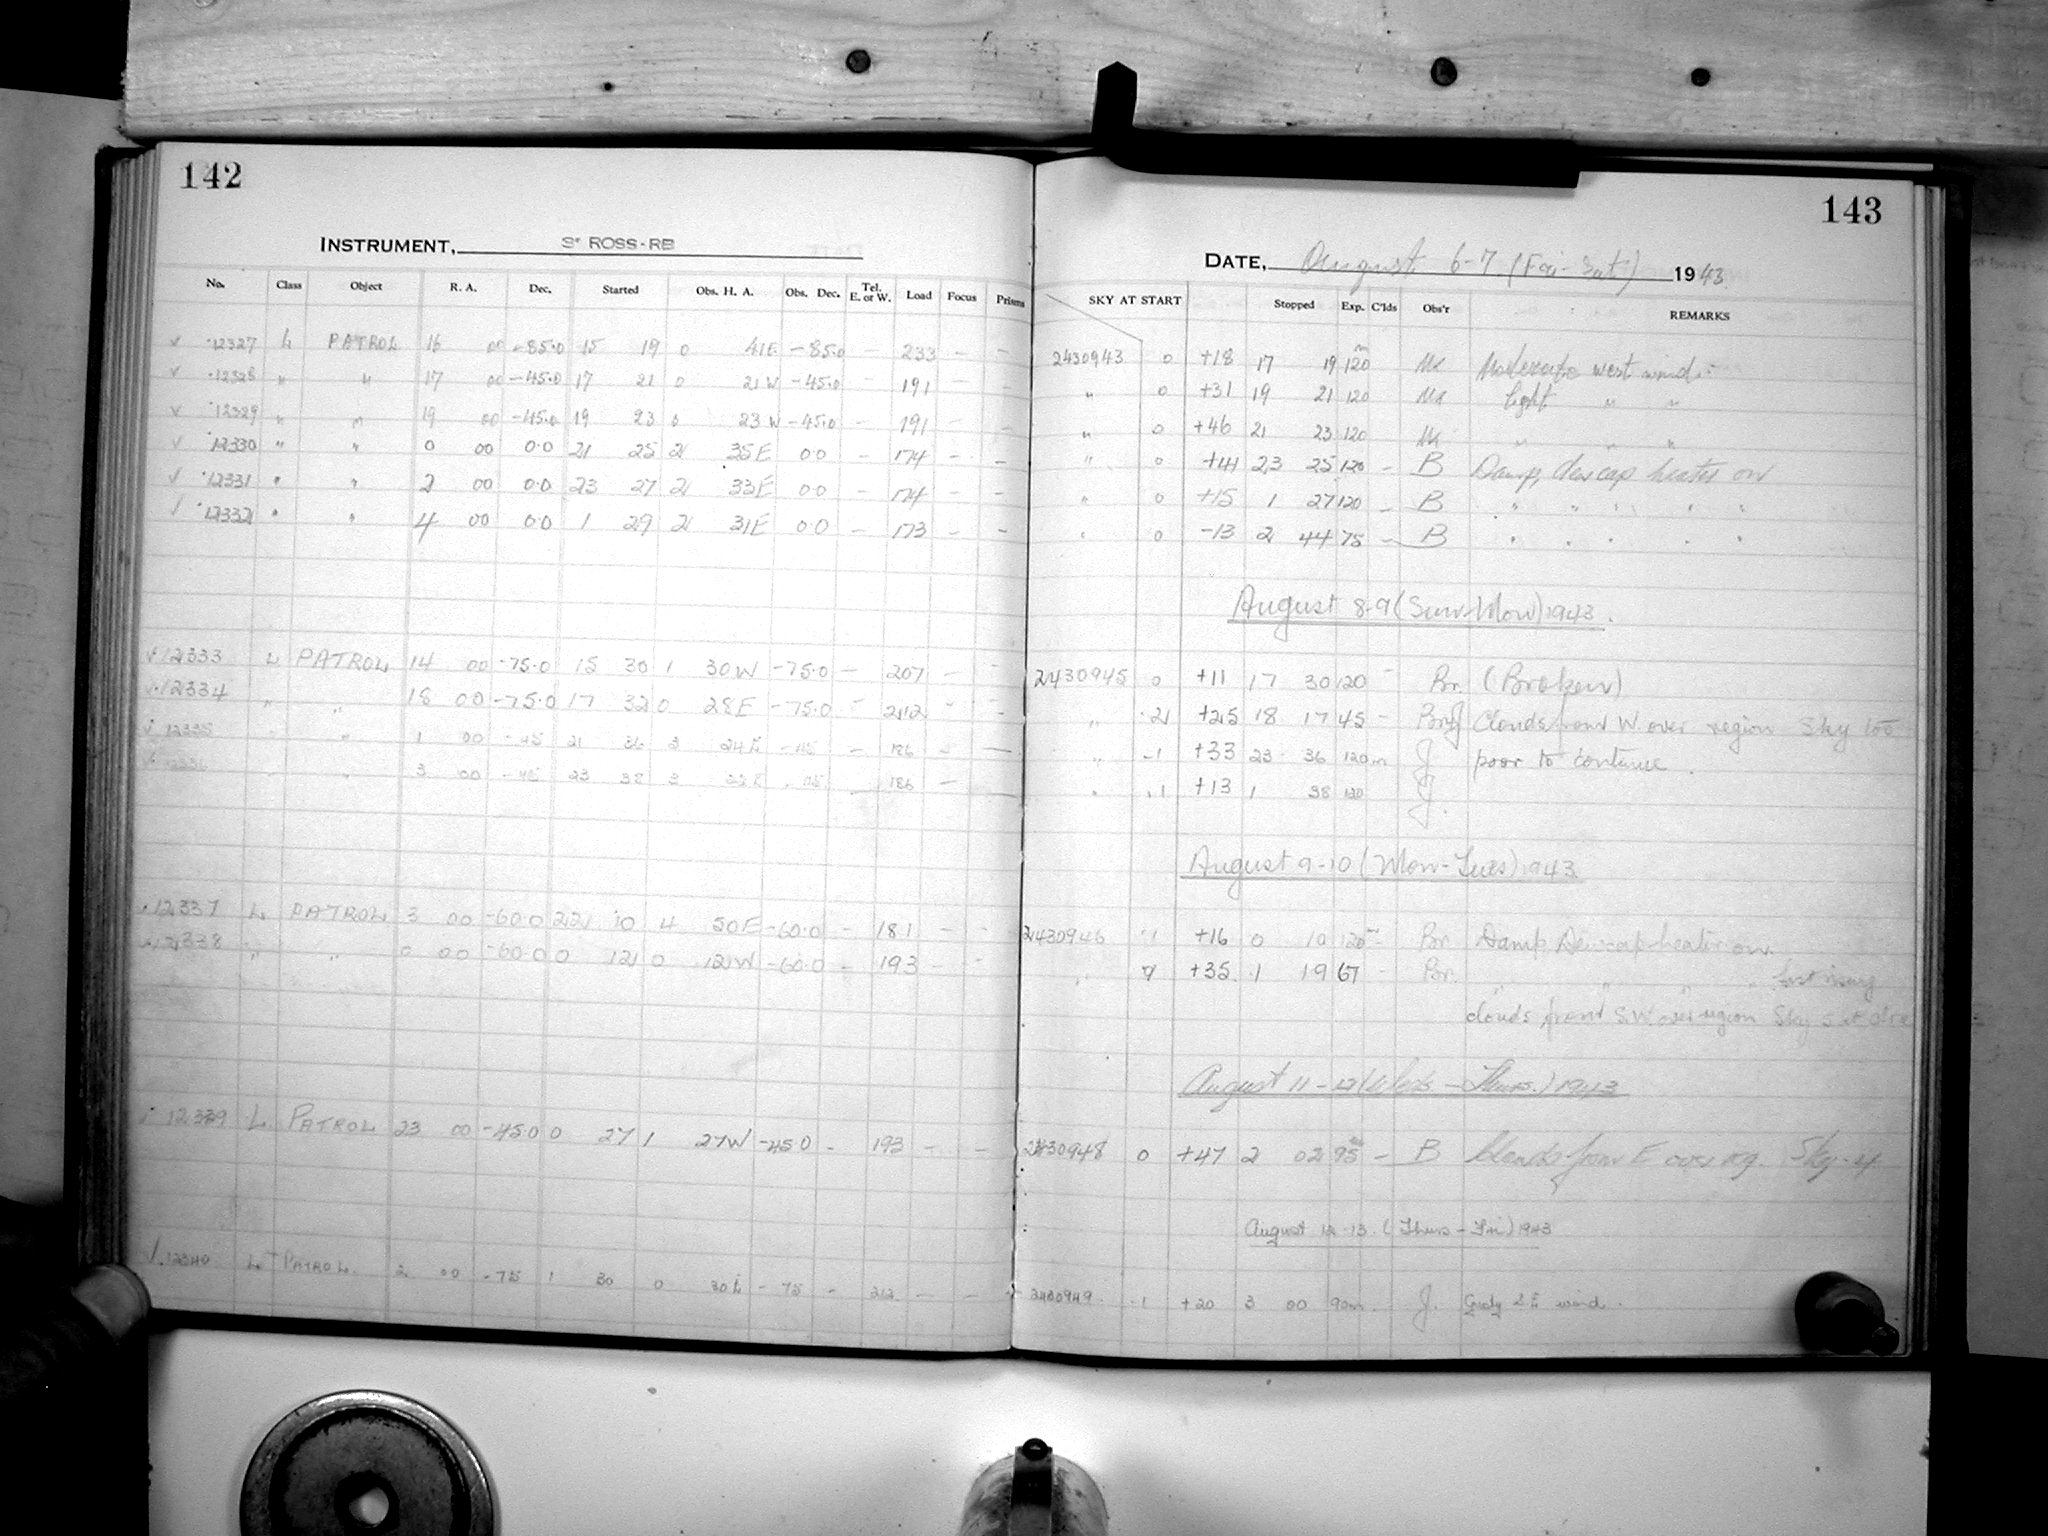 142
INSTRUMENT, 3" ROSS-RB
No. Class Object R. A. Dec. Started Obs. H. A. Obs. Dec. Tel. E. or W. Load Focus Prisms
12327 L PATROL 16 00 -85.0 15 19 0 41E -85.0 - 233 - -
12328 " " 17 00 -45.0 17 21 0 21W -45.0 - 191 - -
12329 " " 19 00 -45.0 19 23 0 23W -45.0 - 191 - -
12330 " " 0 00 0.0 21 25 2 35E 0.0 - 174 - -
12331 " " 2 00 0.0 23 27 2 33E 0.0 - 174 - -
12332 " " 4 00 0.0 1 29 2 31E 0.0 - 173 - -
12333 L PATROL 14 00 -75.0 15 30 1 30W -75.0 - 207 - -
12334 " " 18 00 -75.0 17 32 0 28E -75.0 - 212 - -
12335 " " 1 00 -45 21 36 3 24E -45 - 186 - -
12336 " " 3 00 -45 23 38 3 22E -45 - 186 - -
12337 L PATROL 3 00 -60.0 22 10 4 50E -60.0 - 181 - -
12338 " " 0 00 -60.0 0 12 0 12W -60.0 - 193 - -
12339 L PATROL 23 00 -45.0 0 27 1 27W -45.0 - 193 - -
12340 L PATROL 2 00 -75 1 30 0 30E -75 - 212 - -
143
DATE, August 6-7 (Fri-Sat) 1943.
SKY AT START Stopped Exp. C'lds Obs'r REMARKS
2430943 0 +18 17 19 120m Mc Moderate west wind.
" 0 +31 19 21 120 light " "
" 0 +46 21 23 120 " " "
" 0 +44 23 25 120 - B Damp, dewcap heater on
" 0 +15 1 27 120 - B " " " " "
" 0 -13 2 44 75 - B " " " " "
August 8-9 (Sun-Mon) 1943.
2430945 0 +11 17 30 120 - Br. (Broken)
" 2 +25 18 17 45 - Clouds from W. over region Sky too
" -1 +33 23 36 120m J poor to continue.
" 1 +13 1 38 120 J.
August 9-10 (Mon-Tues) 1943
2430946 1 +16 0 10 120m - Br. Damp, Dewcap heater on.
" +35 1 19 67 - Br. " " " "
clouds from SW over region Sky
August 11-12 (Weds-Thurs.) 1943
2430948 0 +47 2 02 95m - B Clouds from E over reg. Sky-4
August 12-13. (Thurs-Fri) 1943
2430949 1 +20 3 00 90m. J. Gusty SE wind.